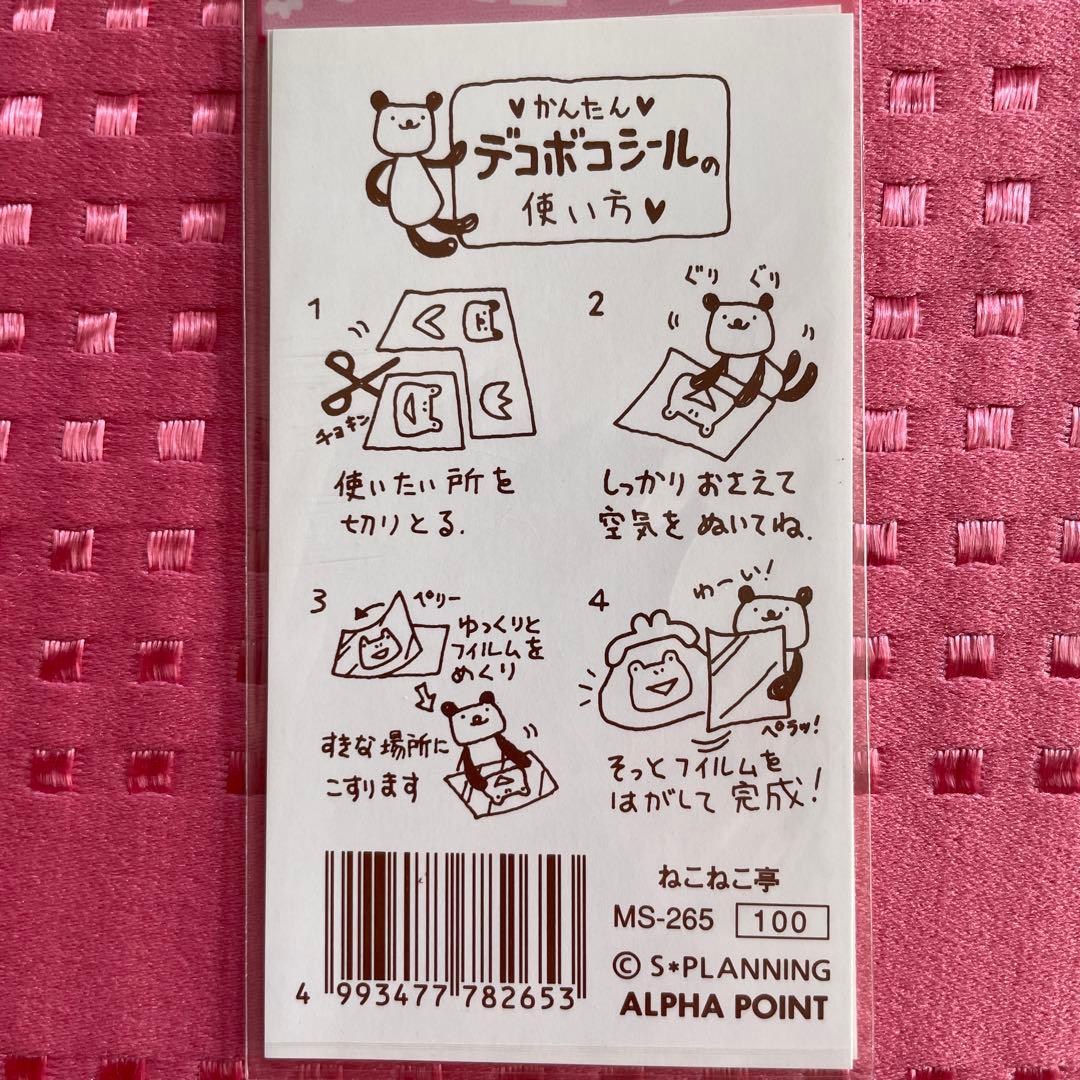 ♥かんたん♥
デコボコシールの
使い方♥
1
チョキン
使いたい所を
切りとる.
2
ぐり ぐり
しっかりおさえて
空気をぬいてね.
3
ペリー
ゆっくりと
フィルムを
めくり
すきな場所に
こすります
4
わーい!
ペラッ!
そっとフィルムを
はがして完成!
4 993477 782653
ねこねこ亭
MS-265 100
© S*PLANNING
ALPHA POINT